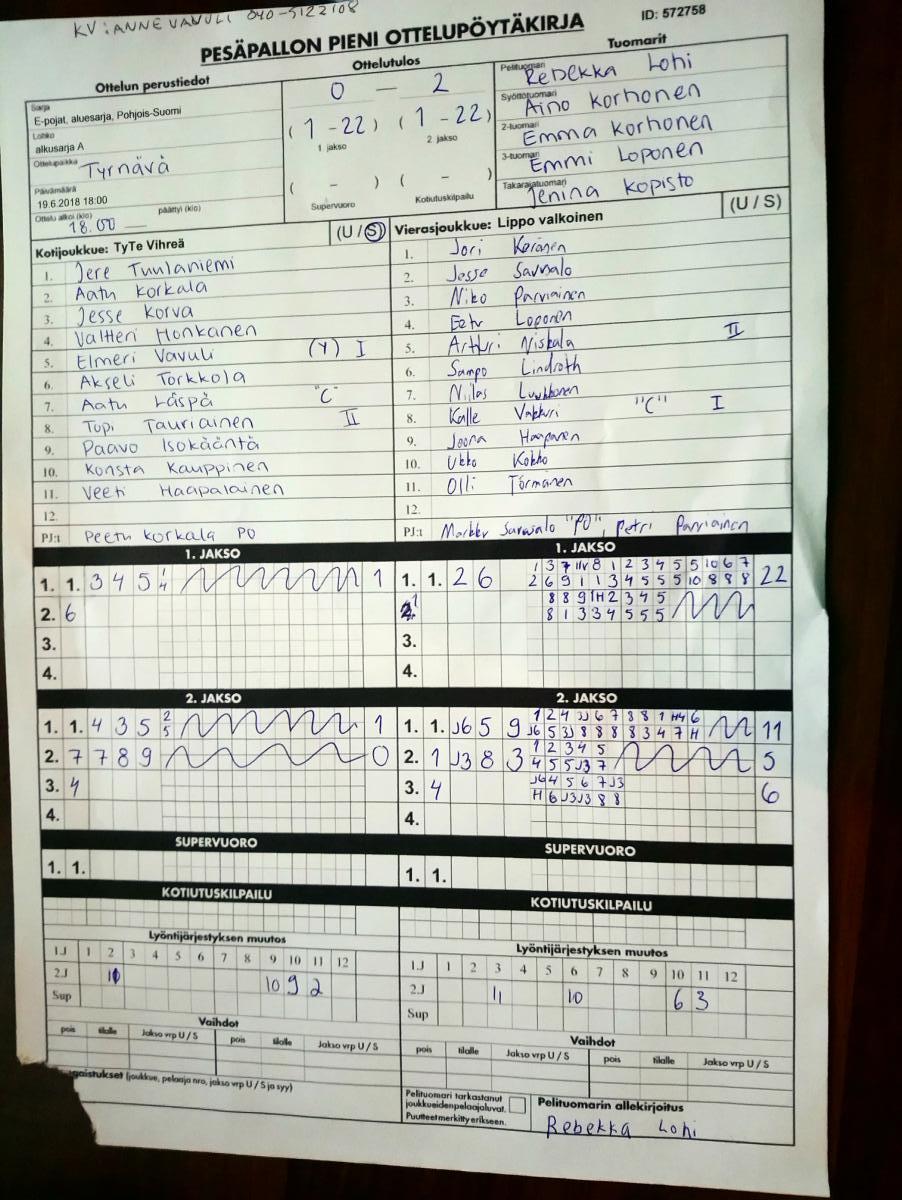 KV: ANNE VAVULI 040-5122108
PESÄPALLON PIENI OTTELUPÖYTÄKIRJA
ID: 572758
Ottelun perustiedot
Sarja
E-pojat, aluesarja, Pohjois-Suomi
Lohko
alkusarja A
Ottelupaikka Tyrnävä
Päivämäärä
19.6.2018 18:00
Ottelu alkoi (klo) 18.00 päättyi (klo)
Ottelutulos
0 - 2
(1 - 22) (1 - 22)
1 jakso 2 jakso
( - ) ( - )
Supervuoro Kotiutuskilpailu
Tuomarit
Pelituomari Rebekka Lohi
Syöttötuomari Aino Korhonen
2-tuomari Emma Korhonen
3-tuomari Emmi Loponen
Takarajatuomari Jenina Kopisto
Kotijoukkue: TyTe Vihreä (U / S)
1. Jere Tuulaniemi
2. Aatu Korkala
3. Jesse Korva
4. Valtteri Honkanen
5. Elmeri Vavuli (Y) I
6. Akseli Torkkola
7. Aatu Läspä "C"
8. Topi Tauriainen II
9. Paavo Isokääntä
10. Konsta Kauppinen
11. Veeti Haapalainen
12.
PJ:t Peetu Korkala PO
Vierasjoukkue: Lippo valkoinen (U / S)
1. Jori Keränen
2. Jesse
3. Niko Parviainen
4. Eetu Loponen
5. Artturi Niskala II
6. Sampo Lindroth
7. Niilas Luukkonen
8. Kalle Vakkuri "C" I
9. Joona Haapanen
10. Ukko Kokko
11. Olli Törmänen
12.
PJ:t Markku "PO", Petri Parviainen
1. JAKSO
1. 1. 3 4 5 1
2. 6
3.
4.
1. JAKSO
1. 1. 2 6 22
3.
4.
2. JAKSO
1. 1. 4 3 5 2 5 1
2. 7 7 8 9 0
3. 4
4.
2. JAKSO
1. 1. J6 5 9 11
2. 1 J3 8 3 1 2 3 4 5 5
4 5 5 J3 7
3. 4 J6 4 5 6 7 J3 6
H 6 J3 J3 8 8
4.
SUPERVUORO
1. 1.
SUPERVUORO
1. 1.
KOTIUTUSKILPAILU
KOTIUTUSKILPAILU
Lyöntijärjestyksen muutos
1.J 1 2 3 4 5 6 7 8 9 10 11 12
2.J 10 10 9 2
Sup
Lyöntijärjestyksen muutos
1.J 1 2 3 4 5 6 7 8 9 10 11 12
2.J 11 10 6 3
Sup
Vaihdot
pois tilalle Jakso vrp U / S pois tilalle Jakso vrp U / S
Vaihdot
pois tilalle Jakso vrp U / S pois tilalle Jakso vrp U / S
(joukkue, pelaaja nro, jakso vrp U / S ja syy)
Pelituomari tarkastanut
joukkueiden pelaajaluvat.
Puutteet merkitty erikseen.
Pelituomarin allekirjoitus
Rebekka Lohi